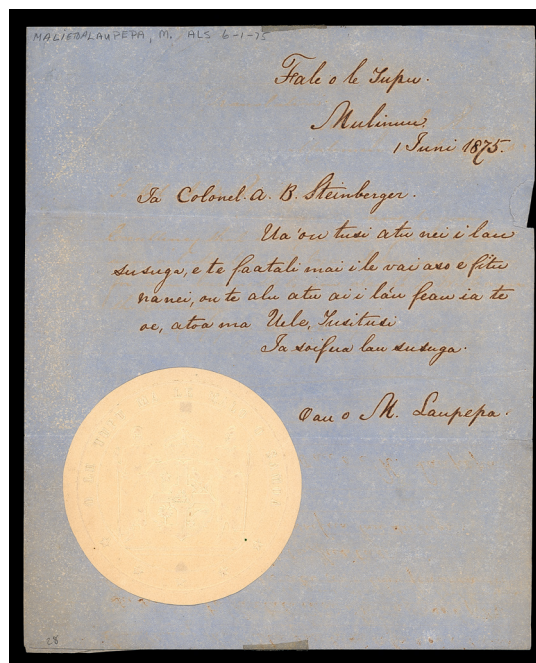 MALIETOA LAUPEPA, M. ALS 6-1-75
Fale o le Tupu.
Mulinuu.
1 Juni 1875.
Ia Colonel. A. B. Steinberger.
Ua ou tusi atu nei i lau
susuga, e te faatali mai i le vai aso e fitu
nanei, ou te alu atu ai i lá'u feau ia te
oe, atoa ma Uele, Tusitusi
Ia soifua lau susuga.
O au o M. Laupepa.
28